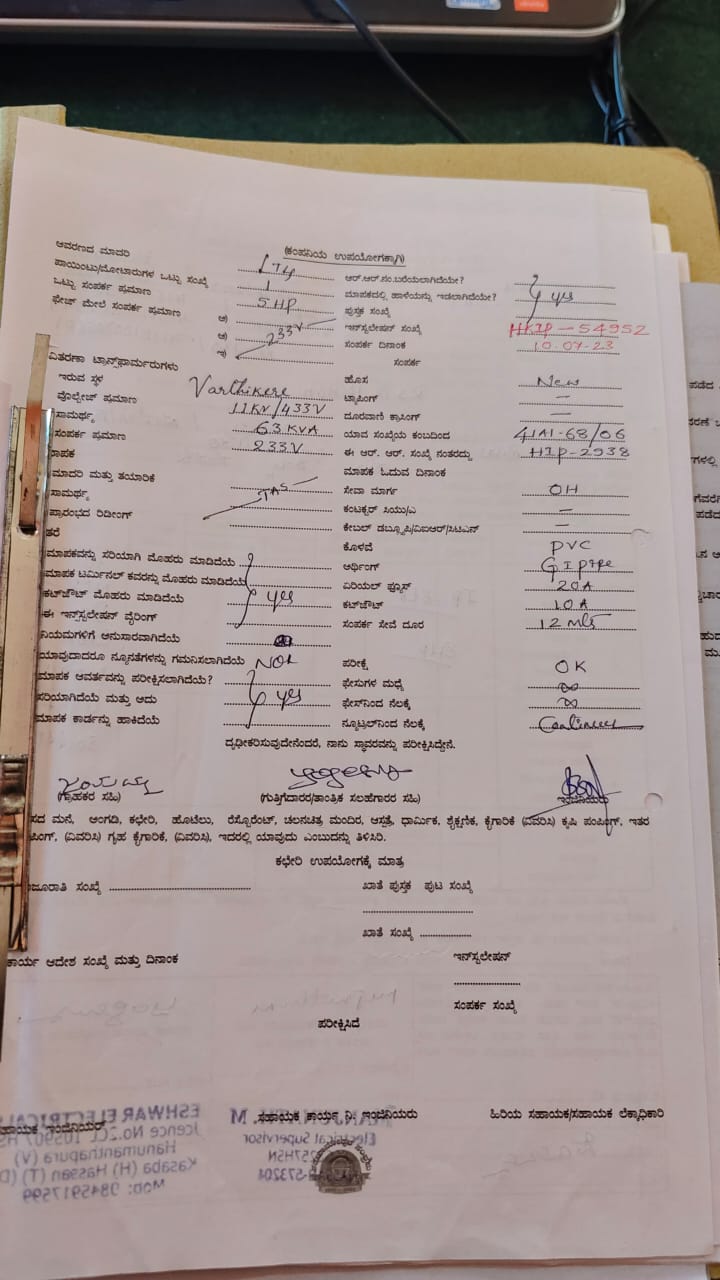 (ಕಂಪನಿಯ ಉಪಯೋಗಕ್ಕಾಗಿ)
ಆವರಣದ ಮಾದರಿ
ಪಾಯಿಂಟು/ಮೋಟಾರುಗಳ ಒಟ್ಟು ಸಂಖ್ಯೆ 1 ಆರ್.ಆರ್.ನಂ.ಬರೆಯಲಾಗಿದೆಯೇ?
ಒಟ್ಟು ಸಂಪರ್ಕ ಪ್ರಮಾಣ 5 HP ಮಾಪಕದಲ್ಲಿ ಹಾಳೆಯನ್ನು ಇಡಲಾಗಿದೆಯೇ? yes
ಫೇಜ್ ಮೇಲೆ ಸಂಪರ್ಕ ಪ್ರಮಾಣ ಅ) ಪುಸ್ತಕ ಸಂಖ್ಯೆ
ಆ) 233V ಇನ್‌ಸ್ಟಲೇಷನ್ ಸಂಖ್ಯೆ HKIP-54952
ಇ) ಸಂಪರ್ಕ ದಿನಾಂಕ 10.07.23
ವಿತರಣಾ ಟ್ರಾನ್ಸ್‌ಫಾರ್ಮರುಗಳು ಸಂಪರ್ಕ
ಇರುವ ಸ್ಥಳ Varthikere ಹೊಸ New
ವೋಲ್ಟೇಜ್ ಪ್ರಮಾಣ 11KV/433V ಟ್ಯಾಪಿಂಗ್ —
ಸಾಮರ್ಥ್ಯ 63 KVA ದೂರವಾಣಿ ಕ್ರಾಸಿಂಗ್ —
ಸಂಪರ್ಕ ಪ್ರಮಾಣ 233V ಯಾವ ಸಂಖ್ಯೆಯ ಕಂಬದಿಂದ 41A1-68/06
ಾಪಕ ಈ ಆರ್. ಆರ್. ಸಂಖ್ಯೆ ನಂತರದ್ದು HIP-2938
ಮಾದರಿ ಮತ್ತು ತಯಾರಿಕೆ ಮಾಪಕ ಓದುವ ದಿನಾಂಕ
ಸಾಮರ್ಥ್ಯ TAS ಸೇವಾ ಮಾರ್ಗ OH
ಪ್ರಾರಂಭದ ರಿಡಿಂಗ್ ಕಂಟಕ್ಟರ್ ಸಿಯು/ಎ —
ತರೆ ಕೇಬಲ್ ಡಬ್ಲ್ಯೂಪಿ/ಐಆರ್/ಸಿಟಿಎಸ್ —
ಮಾಪಕವನ್ನು ಸರಿಯಾಗಿ ಮೊಹರು ಮಾಡಿದೆಯೆ ಕೊಳವೆ PVC
ಮಾಪಕ ಟರ್ಮಿನಲ್ ಕವರನ್ನು ಮೊಹರು ಮಾಡಿದೆಯೆ ಆರ್ಥಿಂಗ್ GI pipe
ಕಟ್‌ಔಟ್ ಮೊಹರು ಮಾಡಿದೆಯೆ yes ಏರಿಯಲ್ ಫ್ಯೂಸ್ 20A
ಈ ಇನ್ಸ್‌ಸ್ಟಲೇಷನ್ ವೈರಿಂಗ್ ಕಟ್‌ಔಟ್ 10A
ನಿಯಮಗಳಿಗೆ ಅನುಸಾರವಾಗಿದೆಯೆ ಸಂಪರ್ಕ ಸೇವೆ ದೂರ 12 Mts
ಯಾವುದಾದರೂ ನ್ಯೂನತೆಗಳನ್ನು ಗಮನಿಸಲಾಗಿದೆಯೆ ಪರೀಕ್ಷೆ OK
ಮಾಪಕ ಆವರ್ತವನ್ನು ಪರೀಕ್ಷಿಸಲಾಗಿದೆಯೆ? ಫೇಸುಗಳ ಮಧ್ಯೆ ∞
ಸರಿಯಾಗಿದೆಯೆ ಮತ್ತು ಅದು yes ಫೇಸ್‌ನಿಂದ ನೆಲಕ್ಕೆ ∞
ಮಾಪಕ ಕಾರ್ಡನ್ನು ಹಾಕಿದೆಯೆ ನ್ಯೂಟ್ರಲ್‌ನಿಂದ ನೆಲಕ್ಕೆ
ದೃಢೀಕರಿಸುವುದೇನೆಂದರೆ, ನಾನು ಸ್ಥಾವರವನ್ನು ಪರೀಕ್ಷಿಸಿದ್ದೇನೆ.
(ಗ್ರಾಹಕರ ಸಹಿ) (ಗುತ್ತಿಗೆದಾರರ/ತಾಂತ್ರಿಕ ಸಲಹೆಗಾರರ ಸಹಿ) ಇಂಜಿನಿಯರು
ಸದ ಮನೆ, ಅಂಗಡಿ, ಕಛೇರಿ, ಹೊಟೆಲು, ರೆಸ್ಟೋರೆಂಟ್, ಚಲನಚಿತ್ರ ಮಂದಿರ, ಆಸ್ಪತ್ರೆ, ಧಾರ್ಮಿಕ, ಶೈಕ್ಷಣಿಕ, ಕೈಗಾರಿಕೆ (ವಿವರಿಸಿ) ಕೃಷಿ ಪಂಪಿಂಗ್, ಇತರ
ಪಿಂಗ್, (ವಿವರಿಸಿ) ಗೃಹ ಕೈಗಾರಿಕೆ, (ವಿವರಿಸಿ), ಇದರಲ್ಲಿ ಯಾವುದು ಎಂಬುದನ್ನು ತಿಳಿಸಿರಿ.
ಕಛೇರಿ ಉಪಯೋಗಕ್ಕೆ ಮಾತ್ರ
ಜೂರಾತಿ ಸಂಖ್ಯೆ ಖಾತೆ ಪುಸ್ತಕ ಪುಟ ಸಂಖ್ಯೆ
ಖಾತೆ ಸಂಖ್ಯೆ
ಕಾರ್ಯ ಆದೇಶ ಸಂಖ್ಯೆ ಮತ್ತು ದಿನಾಂಕ ಇನ್‌ಸ್ಟಲೇಷನ್
ಸಂಪರ್ಕ ಸಂಖ್ಯೆ
ಪರೀಕ್ಷಿಸಿದೆ
ಹಾಯಕ ಇಂಜಿನಿಯರ್ ಸಹಾಯಕ ಕಾರ್ಯ ನಿ. ಇಂಜಿನಿಯರು ಹಿರಿಯ ಸಹಾಯಕ/ಸಹಾಯಕ ಲೆಕ್ಕಾಧಿಕಾರಿ